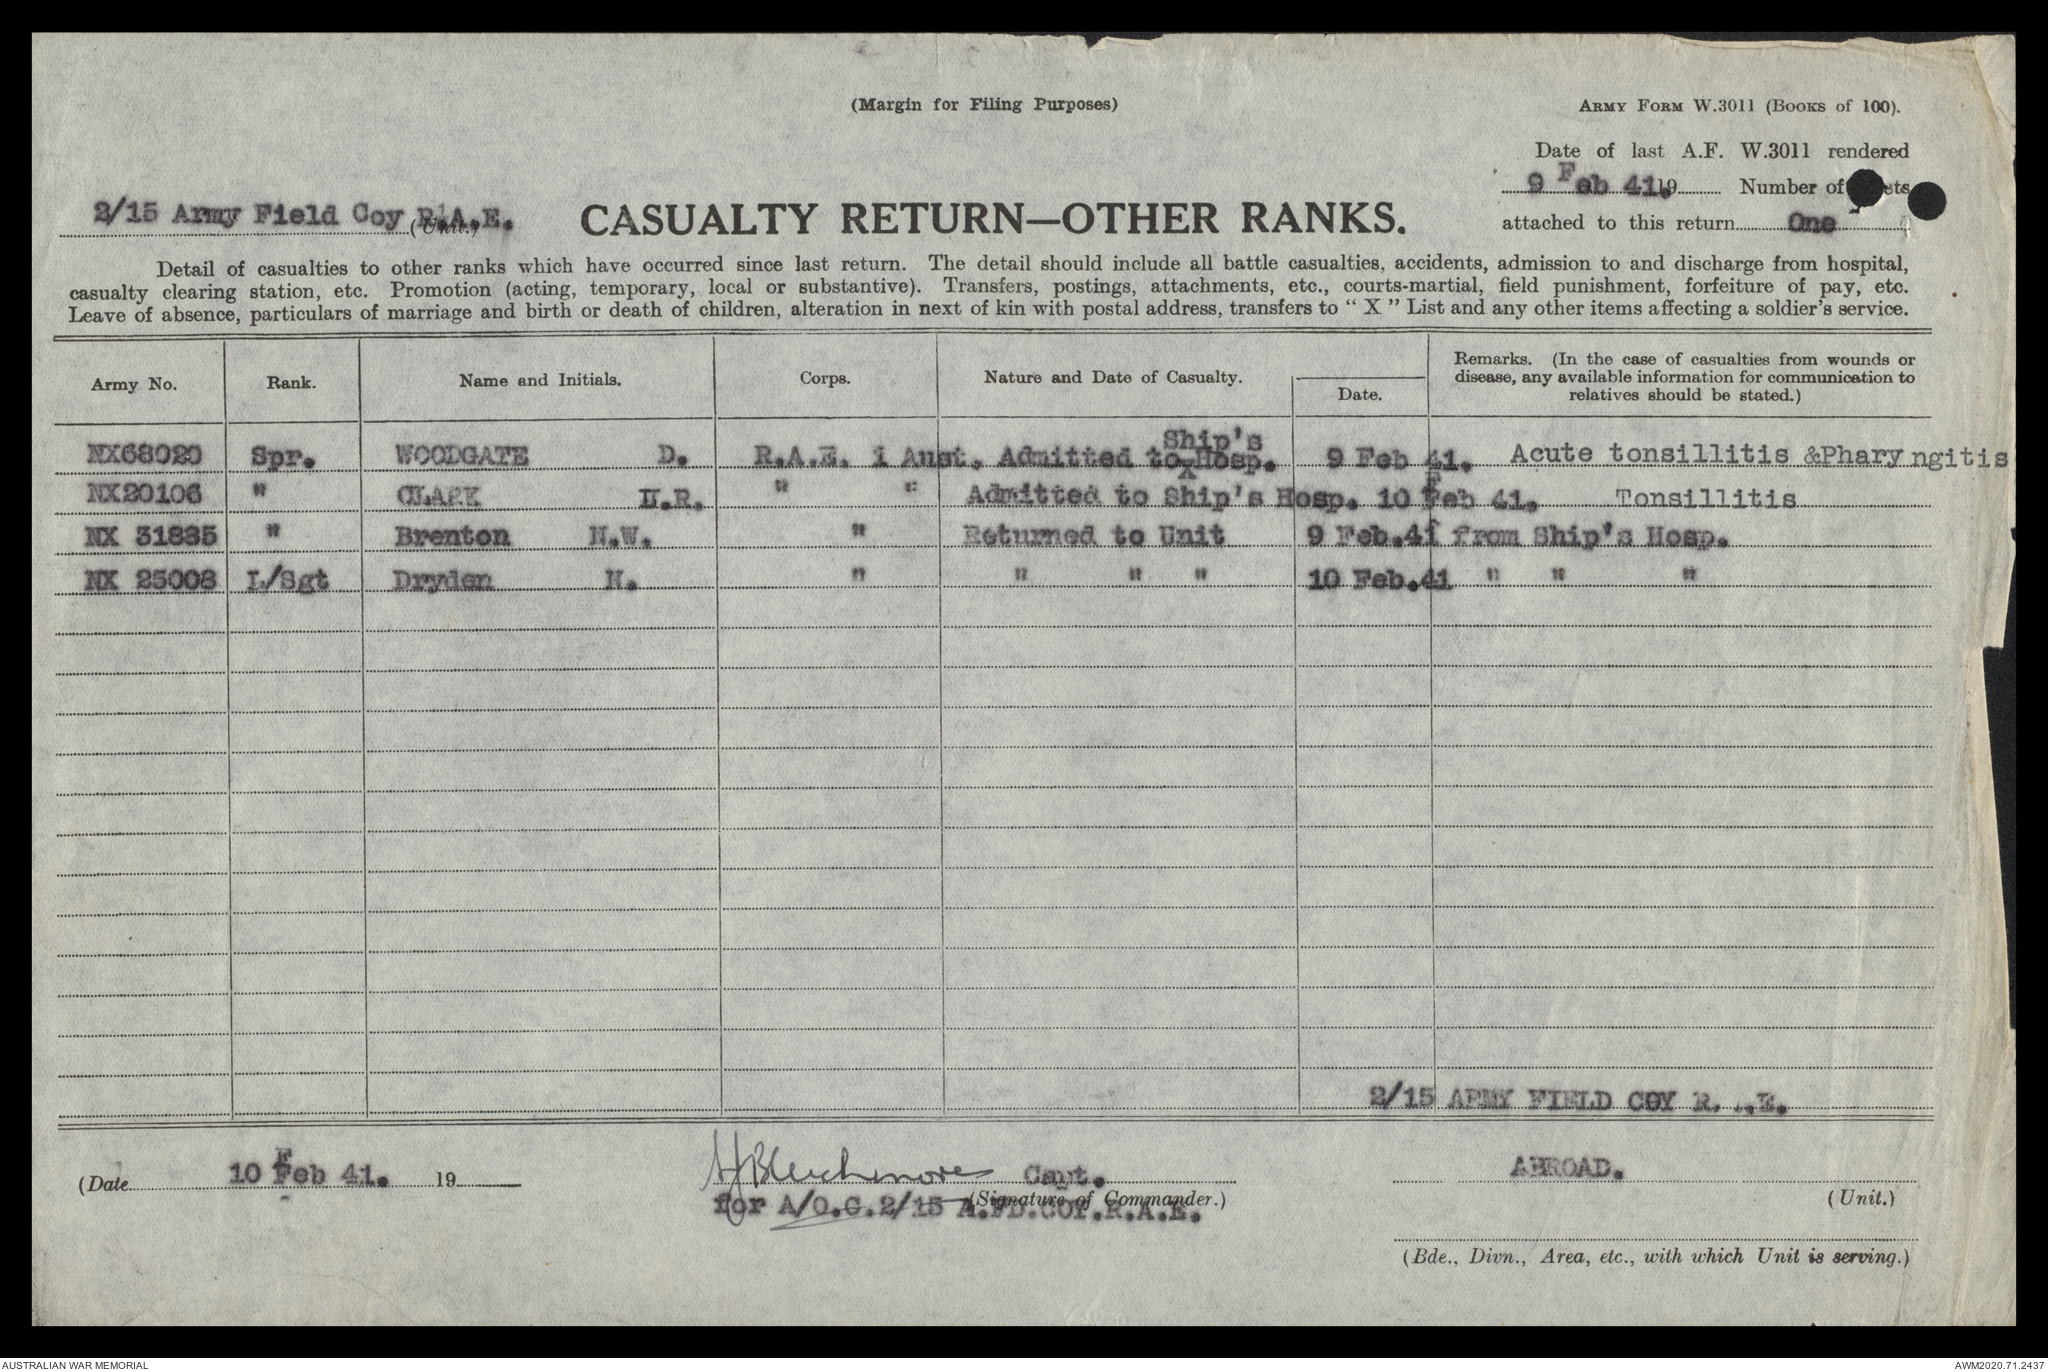 (Margin for Filing Purposes)
ARMY FORM W.3011 (BOOKS of 100).
Date of last A.F. W.3011 rendered
9 Feb 41. 19 Number of
attached to this return One
2/15 Army Field Coy R.A.E.
(Unit.)
CASUALTY RETURN—OTHER RANKS.
Detail of casualties to other ranks which have occurred since last return. The detail should include all battle casualties, accidents, admission to and discharge from hospital,
casualty clearing station, etc. Promotion (acting, temporary, local or substantive). Transfers, postings, attachments, etc., courts-martial, field punishment, forfeiture of pay, etc.
Leave of absence, particulars of marriage and birth or death of children, alteration in next of kin with postal address, transfers to " X " List and any other items affecting a soldier's service.
Army No. Rank. Name and Initials. Corps. Nature and Date of Casualty. Date. Remarks. (In the case of casualties from wounds or
disease, any available information for communication to
relatives should be stated.)
Ship's
NX68020 Spr. WOODGATE D. R.A.E. 1 Aust. Admitted to X Hosp. 9 Feb 41. Acute tonsillitis &Pharyngitis
NX20106 " CLARK H.R. " " Admitted to Ship's Hosp. 10 Feb 41. Tonsillitis
NX 31835 " Brenton N.W. " Returned to Unit 9 Feb.41 from Ship's Hosp.
NX 25008 L/Sgt Dryden H. " " " " 10 Feb.41 " " "
2/15 ARMY FIELD COY R. .E.
(Date 10 Feb 41. 19
HBleechmore Capt.
(Signature of Commander.)
for A/O.C.2/15 A.FD.COY.R.A.E.
ABROAD.
(Unit.)
(Bde., Divn., Area, etc., with which Unit is serving.)
AUSTRALIAN WAR MEMORIAL
AWM2020.71.2437